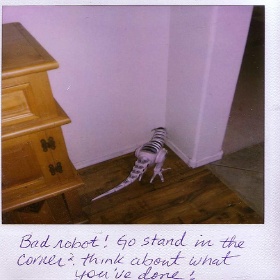 Bad robot! Go stand in the
corner & think about what
you've done!